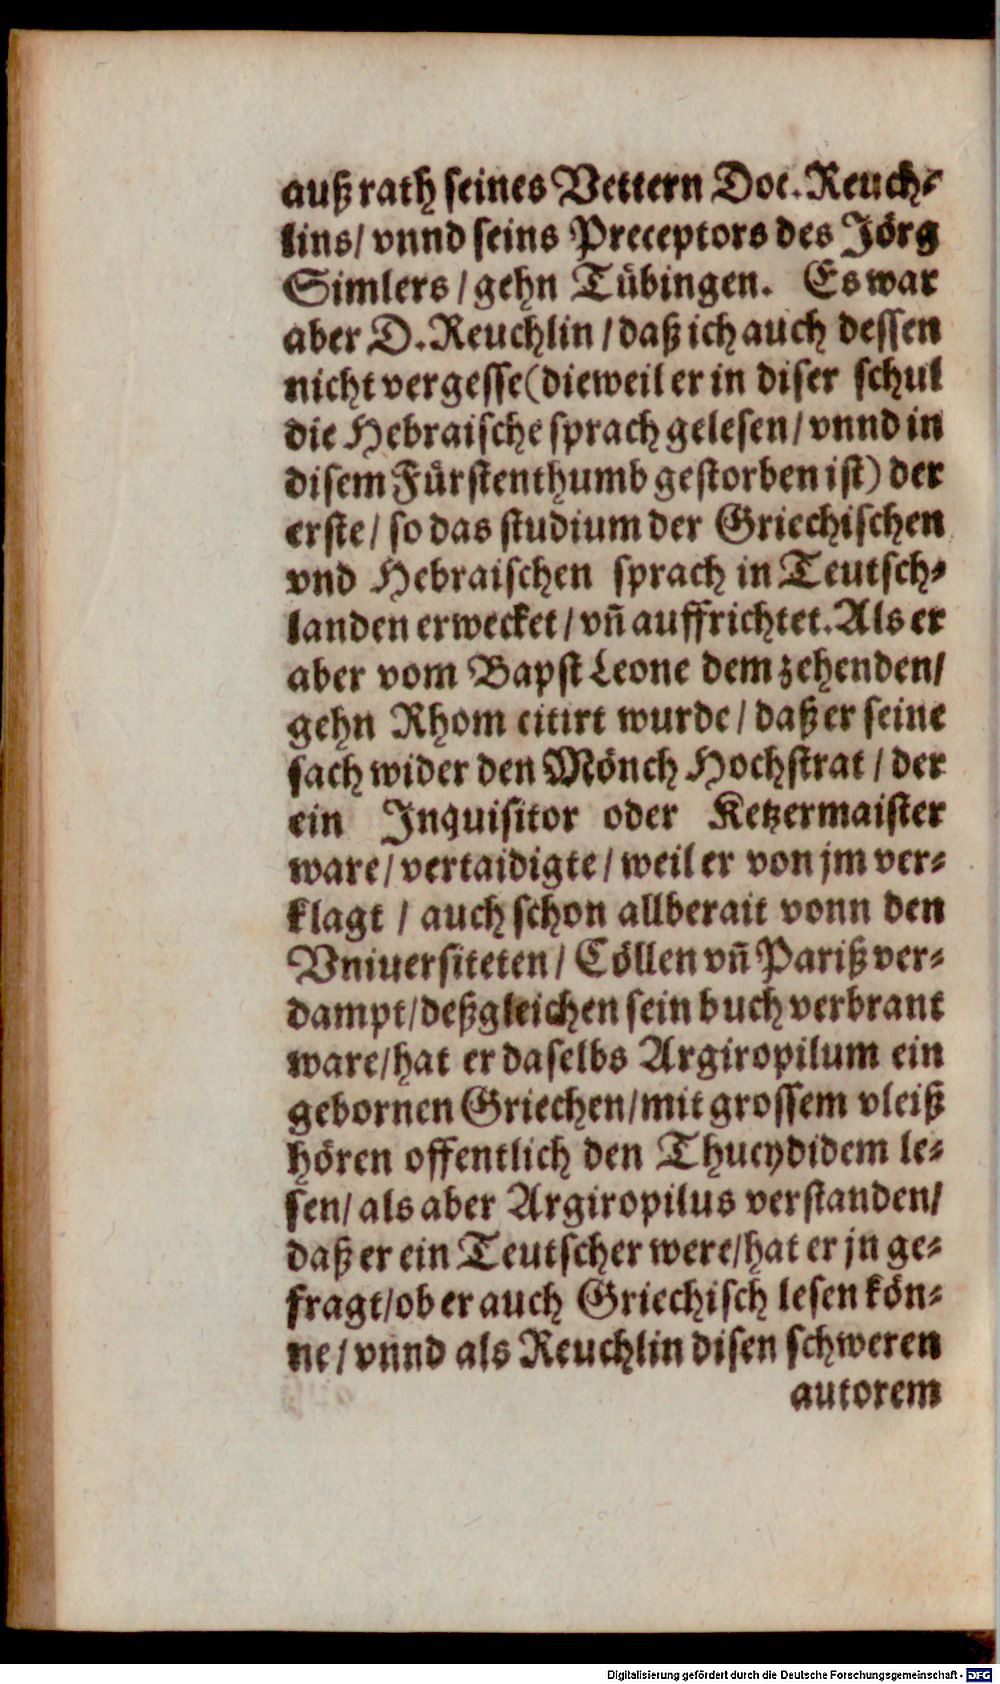 auß rath seines Vettern Doc. Reuch-
lins/ vnnd seins Preceptors des Jörg
Simlers / gehn Tübingen. Es war
aber D. Reuchlin / daß ich auch dessen
nicht vergesse (dieweil er in diser schul
die Hebraische sprach gelesen / vnnd in
disem Fürstenthumb gestorben ist) der
erste / so das studium der Griechischen
vnd Hebraischen sprach in Teutsch-
landen erwecket / vñ auffrichtet. Als er
aber vom Bapst Leone dem zehenden/
gehn Rhom citirt wurde / daß er seine
sach wider den Mönch Hochstrat / der
ein Inquisitor oder Ketzermaister
ware / vertaidigte / weil er von jm ver-
klagt / auch schon allberait vonn den
Vniuersiteten / Cöllen vñ Pariß ver-
dampt/deßgleichen sein buch verbrant
ware/hat er daselbs Argiropilum ein
gebornen Griechen/mit grossem vleiß
hören offentlich den Thucydidem le-
sen/ als aber Argiropilus verstanden/
daß er ein Teutscher were/hat er jn ge-
fragt/ob er auch Griechisch lesen kön-
ne / vnnd als Reuchlin disen schweren
autorem
Digitalisierung gefördert durch die Deutsche Forschungsgemeinschaft - DFG